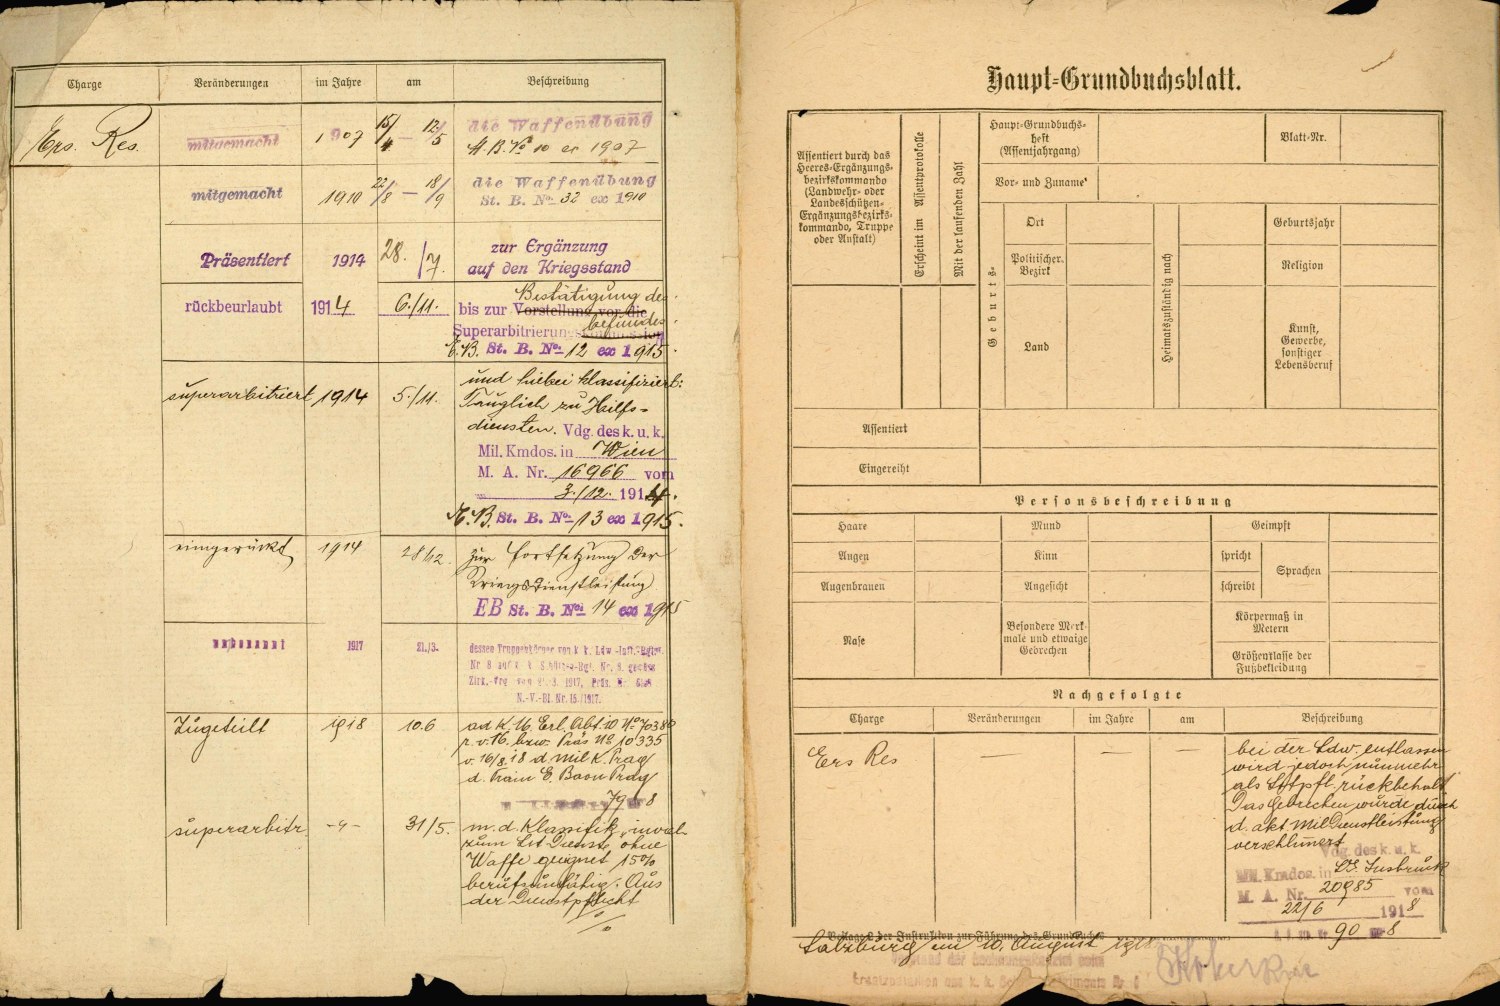 Charge Veränderungen im Jahre am Beschreibung
Ers. Res. mitgemacht 1907 15/4 — 12/5 die Waffenübung
A.B. No 10 ex 1907
mitgemacht 1910 22/8 — 18/9 die Waffenübung
St. B. No. 32 ex 1910
Präsentiert 1914 28./7. zur Ergänzung
auf den Kriegsstand
rückbeurlaubt 1914 6./11. Bestätigung des
bis zur Vorstellung vor die
Superarbitrierungskommission befundes
E.B. St. B. No. 12 ex 1915.
superarbitriert 1914 5./11. und hiebei klassifiziert:
Tauglich zu Hilfs-
diensten. Vdg. des k. u. k.
Mil. Kmdos. in Wien
M. A. Nr. 16966 vom
3./12. 1914.
E.B. St. B. No. 13 ex 1915.
eingerückt 1914 28/12. zur Fortsetzung der
Kriegsdienstleistung
EB St. B. No. 14 ex 1915
1917 21./3. dessen Truppenkörper von k. k. Ldw.-Inft.-Rgtm.
Nr. 8 auf k. k. Schützen-Rgt. Nr. 8. gemäss
Zirk.-Vdg. von 1917, Präs. Nr.
N.-V.-Bl. Nr. 15./1917.
Zugeteilt 1918 10.6 ad K.M. Erl. Abt. 10 No 70380
v. 16. bzw. Präs No 10335
v. 16/8. 18 d. Mil. K. Prag
d. Train E. Baon Prag
79 8
superarbitr. -"- 31/5. m. d. Klassifik. "invalid
zum Lst Dienste ohne
Waffe geeignet 15%
berufsunfähig. Aus
der Dienstpflicht
./.
Haupt-Grundbuchsblatt.
Assentiert durch das
Heeres-Ergänzungs-
bezirkskommando
(Landwehr- oder
Landesschützen-
Ergänzungsbezirks-
kommando, Truppe
oder Anstalt)
Erscheint im Assentprotokolle
Mit der laufenden Zahl
Haupt-Grundbuchs-
heft
(Assentjahrgang)
Blatt-Nr.
Vor- und Zuname
Geburts-
Ort
Politischer
Bezirk
Land
Heimatszuständig nach
Geburtsjahr
Religion
Kunst,
Gewerbe,
sonstiger
Lebensberuf
Assentiert
Eingereiht
Personsbeschreibung
Haare Mund Geimpft
Augen Kinn spricht Sprachen
Augenbrauen Angesicht schreibt
Nase Besondere Merk-
male und etwaige
Gebrechen
Körpermaß in
Metern
Größenklasse der
Fußbekleidung
Nachgefolgte
Charge Veränderungen im Jahre am Beschreibung
Ers Res — — — bei der Ldw. entlassen
wird jedoch nunmehr
als Lstpfl. rückbehalt.
Das Gebrechen wurde durch
d. akt Mil Dienstleistung
verschlimert
Vdg. des k. u. k.
Mil. Kmdos. in Innsbruck
M. A. Nr. 20985 vom
22/6 1918
90 8
Beilage 2 der Instruktion zur Führung des Grundbuches
Salzburg am 10. August 1918